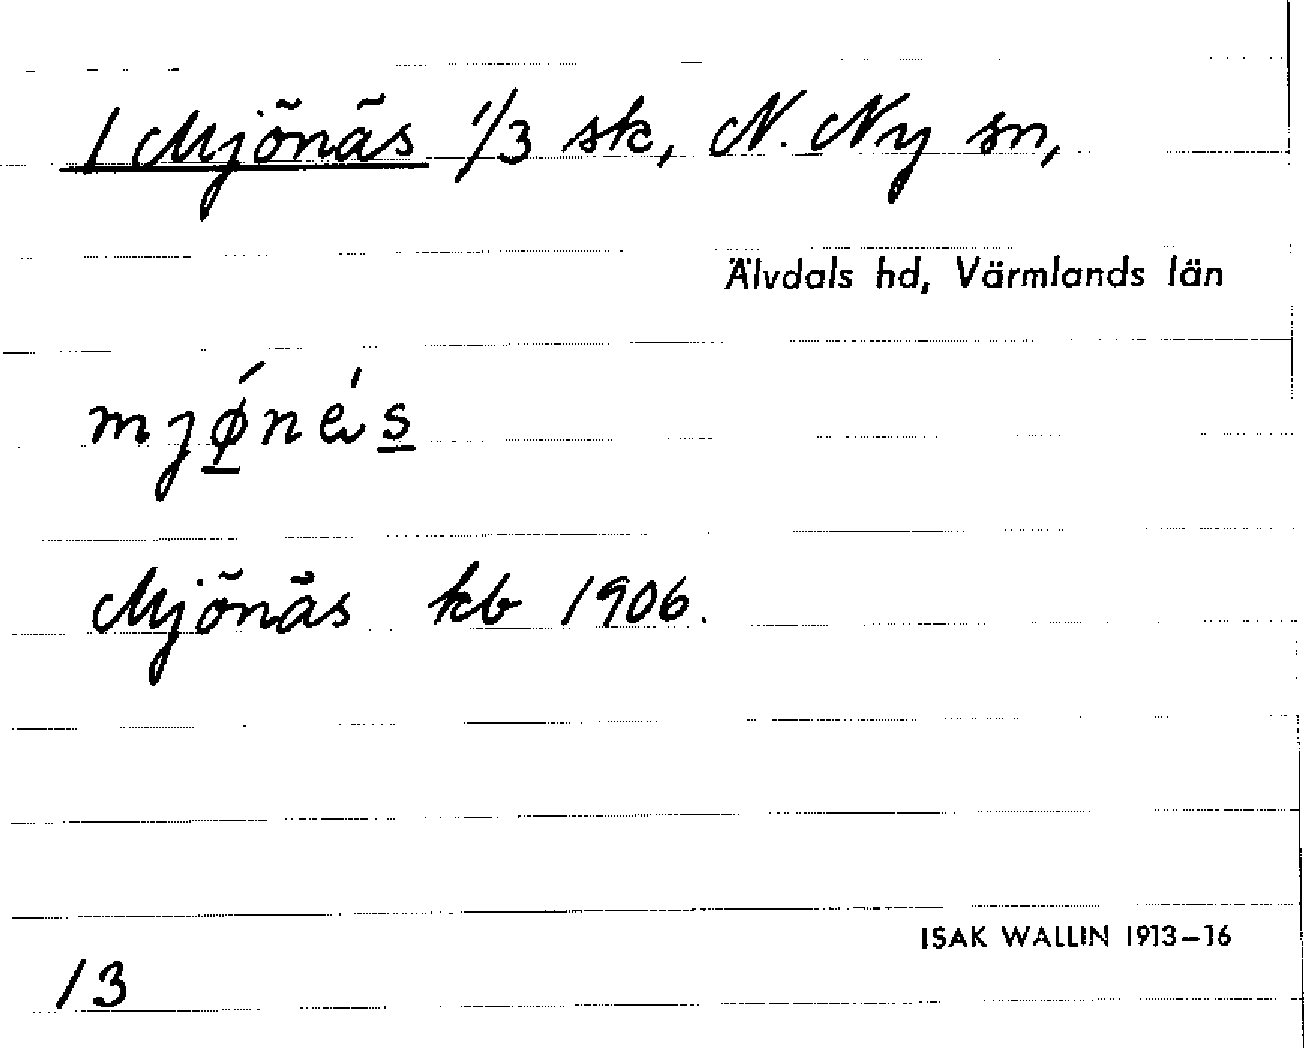 1 Mjönäs 1/3 sk, N. Ny sn,
Älvdals hd, Värmlands län
mjǿ̲nés̲
Mjönäs kb 1906.
ISAK WALLIN 1913–16
13